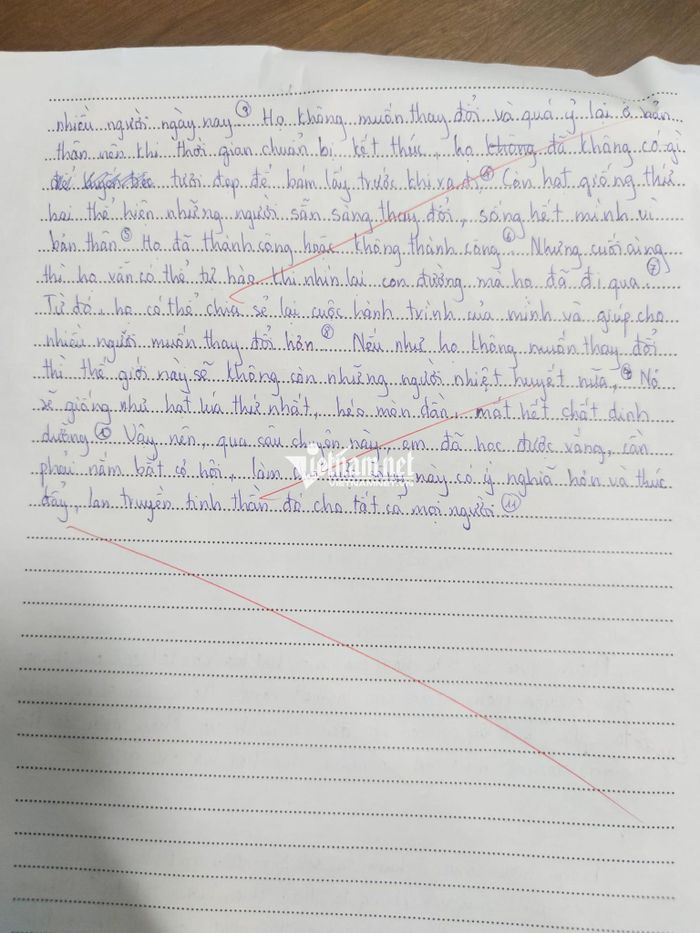 nhiều người ngày nay ③ Họ không muốn thay đổi và quá ỷ lại ở bản
thân nên khi thời gian chuẩn bị kết thúc, họ không đã không có gì
để tươi đẹp để bám lấy trước khi ra đi ④ Còn hạt giống thứ
hai thể hiện những người sẵn sàng thay đổi, sống hết mình vì
bản thân ⑤ Họ đã thành công hoặc không thành công ⑥. Nhưng cuối cùng
thì họ vẫn có thể tự hào khi nhìn lại con đường mà họ đã đi qua. ⑦
Từ đó, họ có thể chia sẻ lại cuộc hành trình của mình và giúp cho
nhiều người muốn thay đổi hơn ⑧ Nếu như họ không muốn thay đổi
thì thế giới này sẽ không còn những người nhiệt huyết nữa, ⑨ Nó
sẽ giống như hạt lúa thứ nhất, héo mòn dần, mất hết chất dinh
dưỡng ⑩ Vậy nên, qua câu chuyện này, em đã học được vắng, cần
phải nắm bắt cơ hội, làm này có ý nghĩa hơn và thúc
đẩy, lan truyền tinh thần đó cho tất cả mọi người ⑪
Vietnam.net